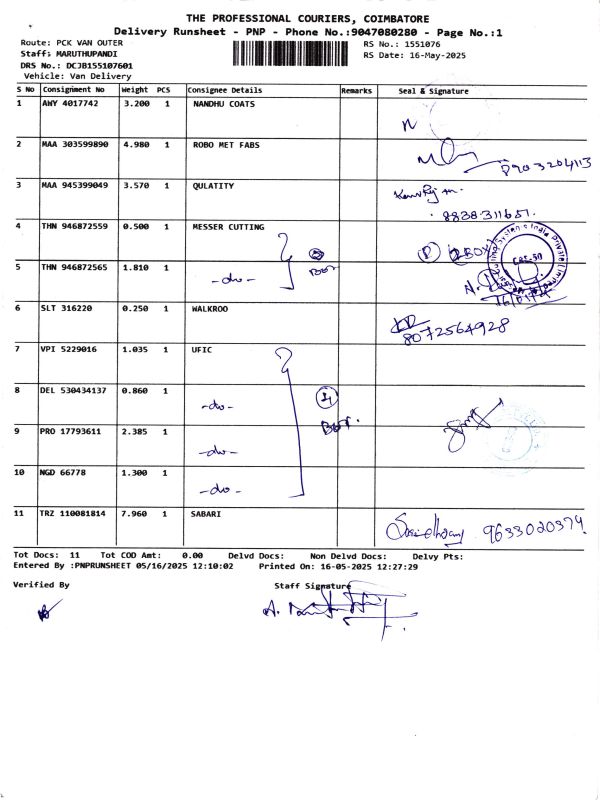 THE PROFESSIONAL COURIERS, COIMBATORE
Delivery Runsheet - PNP - Phone No.:9047080280 - Page No.:1
Route: PCK VAN OUTER RS No.: 1551076
Staff: MARUTHUPANDI RS Date: 16-May-2025
DRS No.: DCJB155107601
Vehicle: Van Delivery
S No Consignment No Weight PCS Consignee Details Remarks Seal & Signature
1 AWY 4017742 3.200 1 NANDHU COATS
2 MAA 303599890 4.980 1 ROBO MET FABS
3 MAA 945399049 3.570 1 QULATITY
8838311651.
4 THN 946872559 0.500 1 MESSER CUTTING
5 THN 946872565 1.810 1 -do-
6 SLT 316220 0.250 1 WALKROO
8072564928
7 VPI 5229016 1.035 1 UFIC
8 DEL 530434137 0.860 1 -do- 4
9 PRO 17793611 2.385 1 -do-
10 NGD 66778 1.300 1 -do-
11 TRZ 110081814 7.960 1 SABARI 9633020379
Tot Docs: 11 Tot COD Amt: 0.00 Delvd Docs: Non Delvd Docs: Delvy Pts:
Entered By :PNPRUNSHEET 05/16/2025 12:10:02 Printed On: 16-05-2025 12:27:29
Verified By Staff Signature